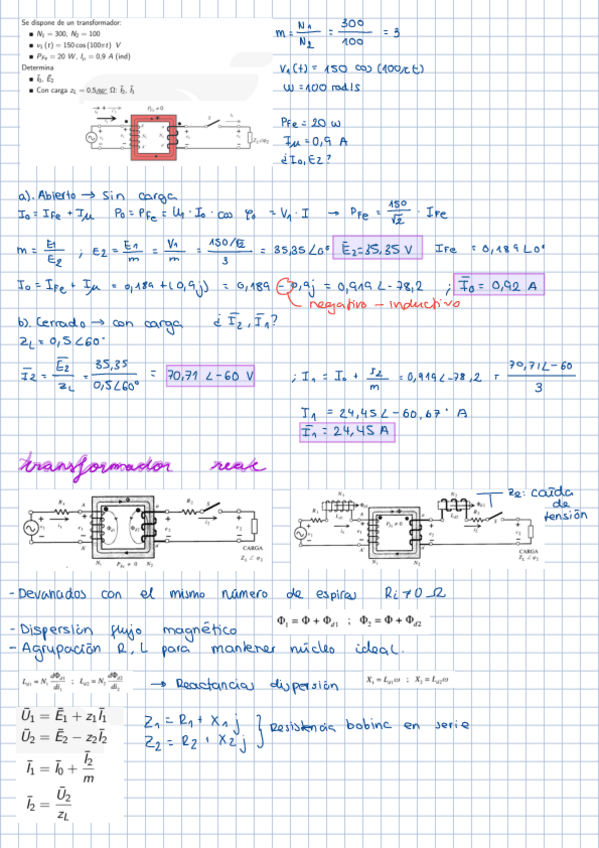 Se dispone de un transformador:
▪ N₁ = 300, N₂ = 100
▪ v₁(t) = 150 cos(100πt) V
▪ P_Fe = 20 W, I_μ = 0,9 A (ind)
Determina
▪ Ī₀, Ē₂
▪ Con carga z_L = 0,5/60° Ω: Ī₂, Ī₁
m = N₁/N₂ = 300/100 = 3
V₁(t) = 150 cos(100πt)
ω = 100 rad/s
P_Fe = 20 W
I_μ = 0,9 A
¿I₀, E₂?
P_Fe ≠ 0
a). Abierto → Sin carga
I₀ = I_Fe + I_μ P₀ = P_Fe = U₁ · I₀ · cos φ₀ = V₁ · I → P_Fe = 150/√2 · I_Fe
m = E₁/E₂ ; E₂ = E₁/m = V₁/m = 150/√2/3 = 35,35∠0° Ē₂ = 35,35 V I_Fe = 0,189∠0°
I₀ = I_Fe + I_μ = 0,189 + (0,9j) = 0,189 - 0,9j = 0,919∠-78,2 ; Ī₀ = 0,92 A
negativo - inductivo
b). Cerrado → con carga ¿Ī₂, Ī₁?
Z_L = 0,5∠60°
Ī₂ = Ē₂/Z_L = 35,35/0,5∠60° = 70,71∠-60 V ; I₁ = I₀ + I₂/m = 0,919∠-78,2 = 70,71∠-60/3
I₁ = 24,45∠-60,67° A
Ī₁ = 24,45 A
transformador real
Z₂: caída de tensión
R₁ R₂ S
CARGA
Z_L ∠φ₂
N₁ P_Fe ≠ 0 N₂
P_Fe ≠ 0
CARGA
Z_L ∠φ₂
- Devanados con el mismo número de espiras Ri ≠ 0 Ω
- Dispersión flujo magnético Φ₁ = Φ + Φ_d1 ; Φ₂ = Φ + Φ_d2
- Agrupación R, L para mantener núcleo ideal.
L_d1 = N₁ dΦ_d1/di₁ ; L_d2 = N₂ dΦ_d2/di₂ → Reactancias dispersión X₁ = L_d1ω ; X₂ = L_d2ω
Ū₁ = Ē₁ + z₁Ī₁
Ū₂ = Ē₂ − z₂Ī₂
Ī₁ = Ī₀ + Ī₂/m
Ī₂ = Ū₂/z_L
Z₁ = R₁ + X₁j
Z₂ = R₂ + X₂j
} Resistencia bobina en serie